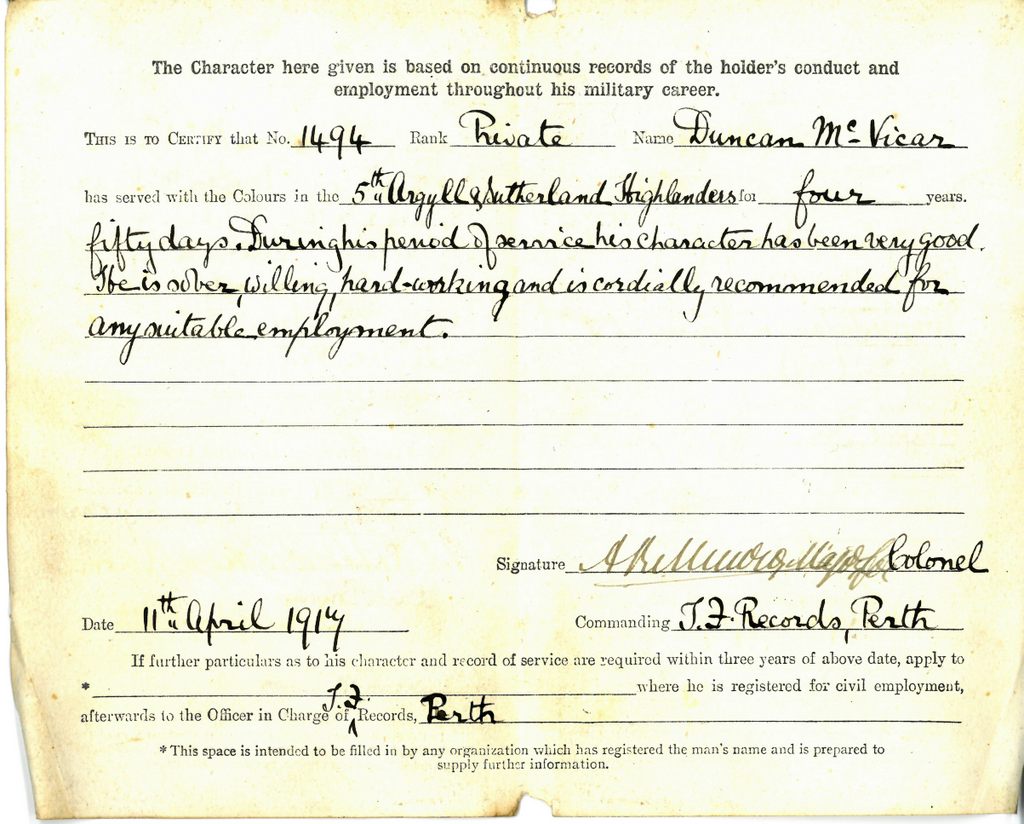 The Character here given is based on continuous records of the holder's conduct and
employment throughout his military career.
THIS IS TO CERTIFY that No. 1494 Rank Private Name Duncan Mc Vicar
has served with the Colours in the 5th Argyll & Sutherland Highlanders for four years.
fifty days. During his period of service his character has been very good.
He is sober, willing, hard-working and is cordially recommended for
any suitable employment.
Signature Major for Colonel
Date 11th April 1917 Commanding T.F. Records, Perth
If further particulars as to his character and record of service are required within three years of above date, apply to
* where he is registered for civil employment,
afterwards to the Officer in Charge of T.F. Records, Perth
* This space is intended to be filled in by any organization which has registered the man's name and is prepared to
supply further information.